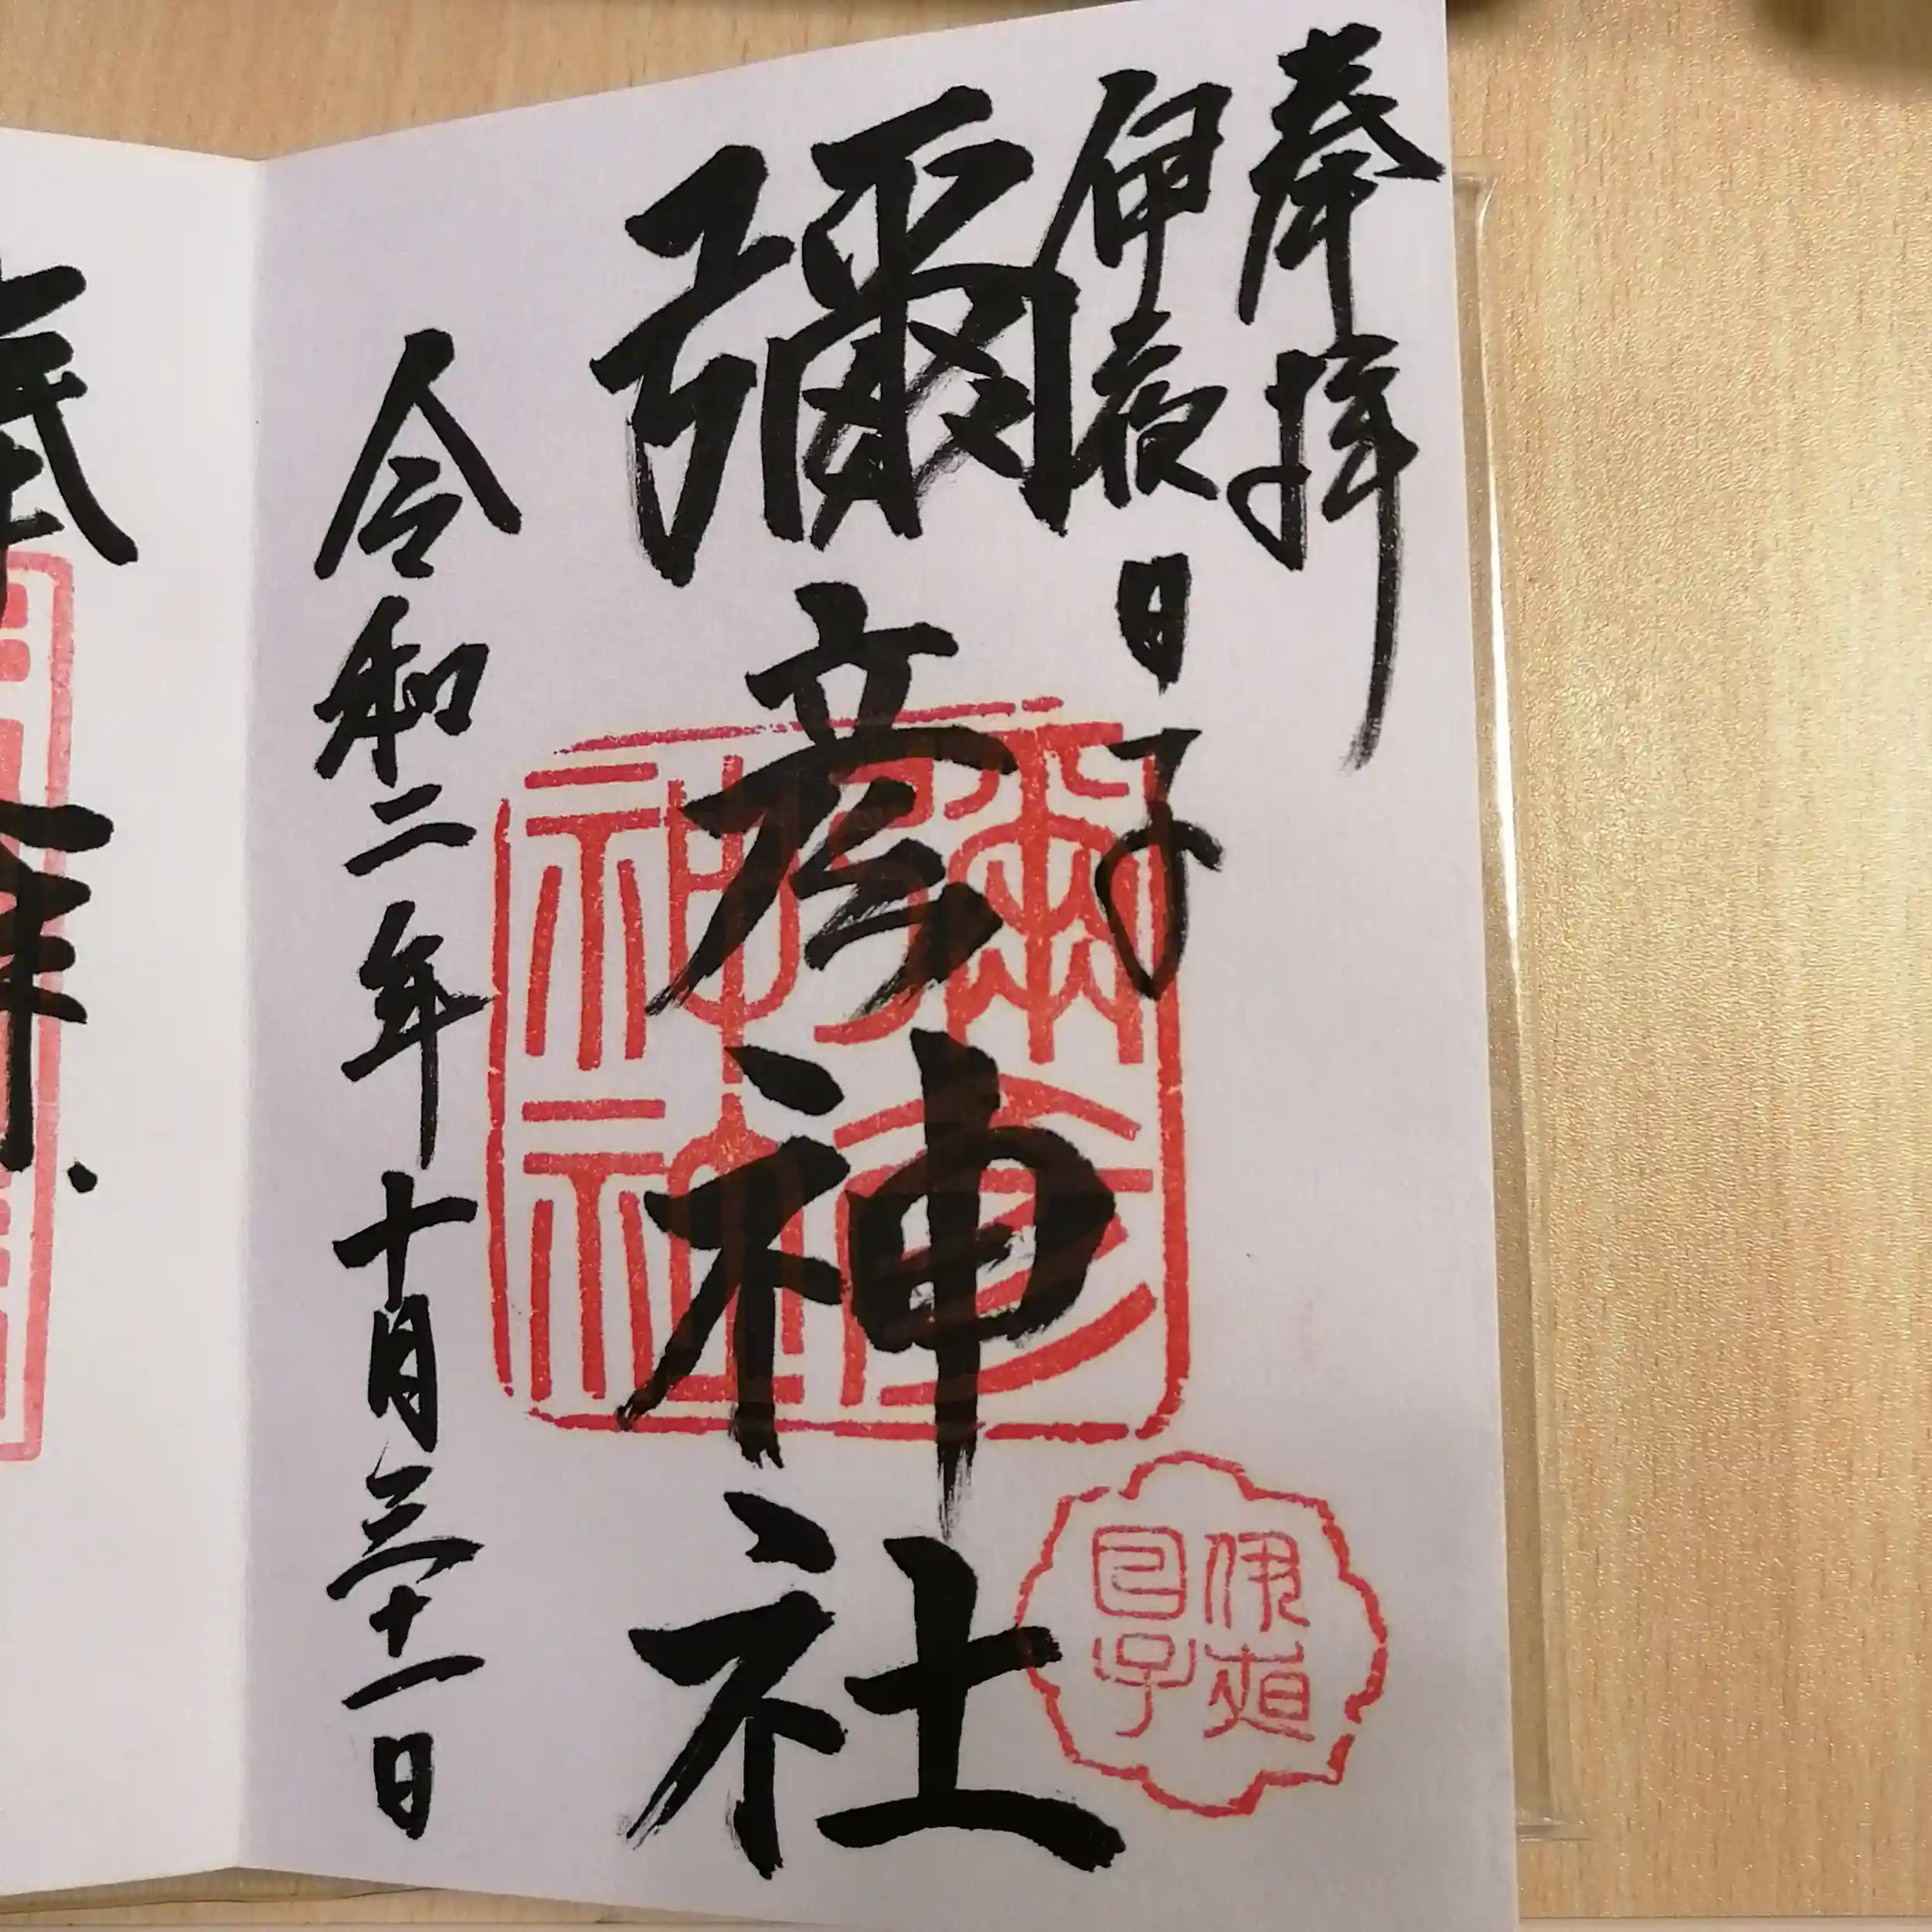 奉拝
伊夜日子
彌彦神社
令和二年十月三十一日
彌彦神社